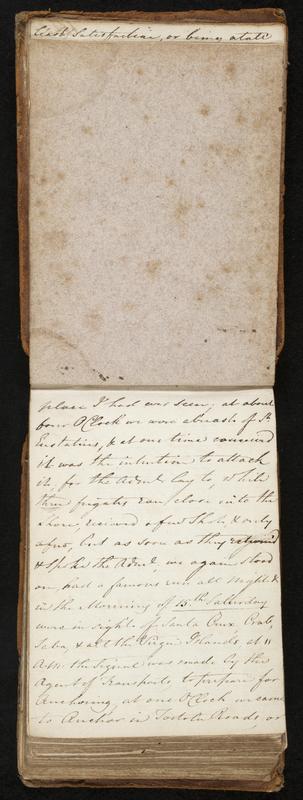 least Satisfaction, or being a tall
place I had ever seen, at about
four O'Clock we were abreast of St.
Eustatius, & at one time conceived
it was the intention to attack
it, for the Adml. lay to, while
three frigates ran close into the
shore, received a few Shots, & only
a few, but as soon as they returned
& Spoke the Adml, we again stood
on, had a famous run all Night &
in the Morning of 15th. Saturday
were in sight of Santa Crux, Crab,
Saba, & all the Virgin Islands, at 11
A.M. the Signal was made by the
Agent of Transports, to prepare for
Anchoring, at one O'Clock we came
to Anchor in Tortola Roads, or